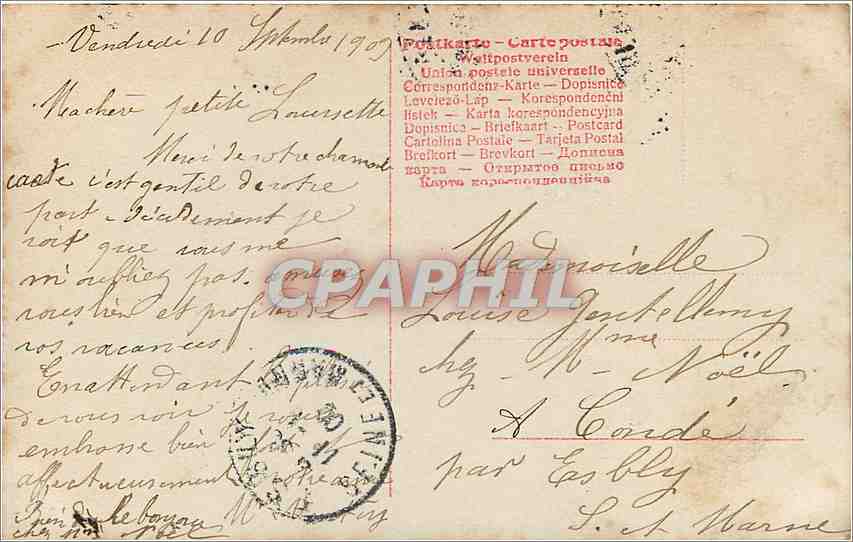 Vendredi 10 Septembre 1909
Ma chère petite Loursette
Merci de votre charmante
carte c'est gentil de votre
part. Décidement je
voit que vous me
m'oubliez pas. amusez
vous bien et profitez de
vos vacances.
En attendant le plaisir
de vous voir je vous
embrasse bien
affectueusement votre amie
Bien le bonjour
chez Mme Noël
Postkarte – Carte postale
Weltpostverein
Union postale universelle
Correspondenz-Karte – Dopisnice
Levelező-Lap – Korespondenční
listek – Karta korespondencyjna
Dopisnica – Briefkaart – Postcard
Cartolina Postale – Tarjeta Postal
Brefkort – Brevkort – Дописна
карта – Открытое письмо
Карта кореспонденційна
CPAPHIL
Mademoiselle
Louise Gentellemy
chez Mme Noël
A Condé
par Esbly
S. et Marne
ESBLY
SEINE ET MARNE